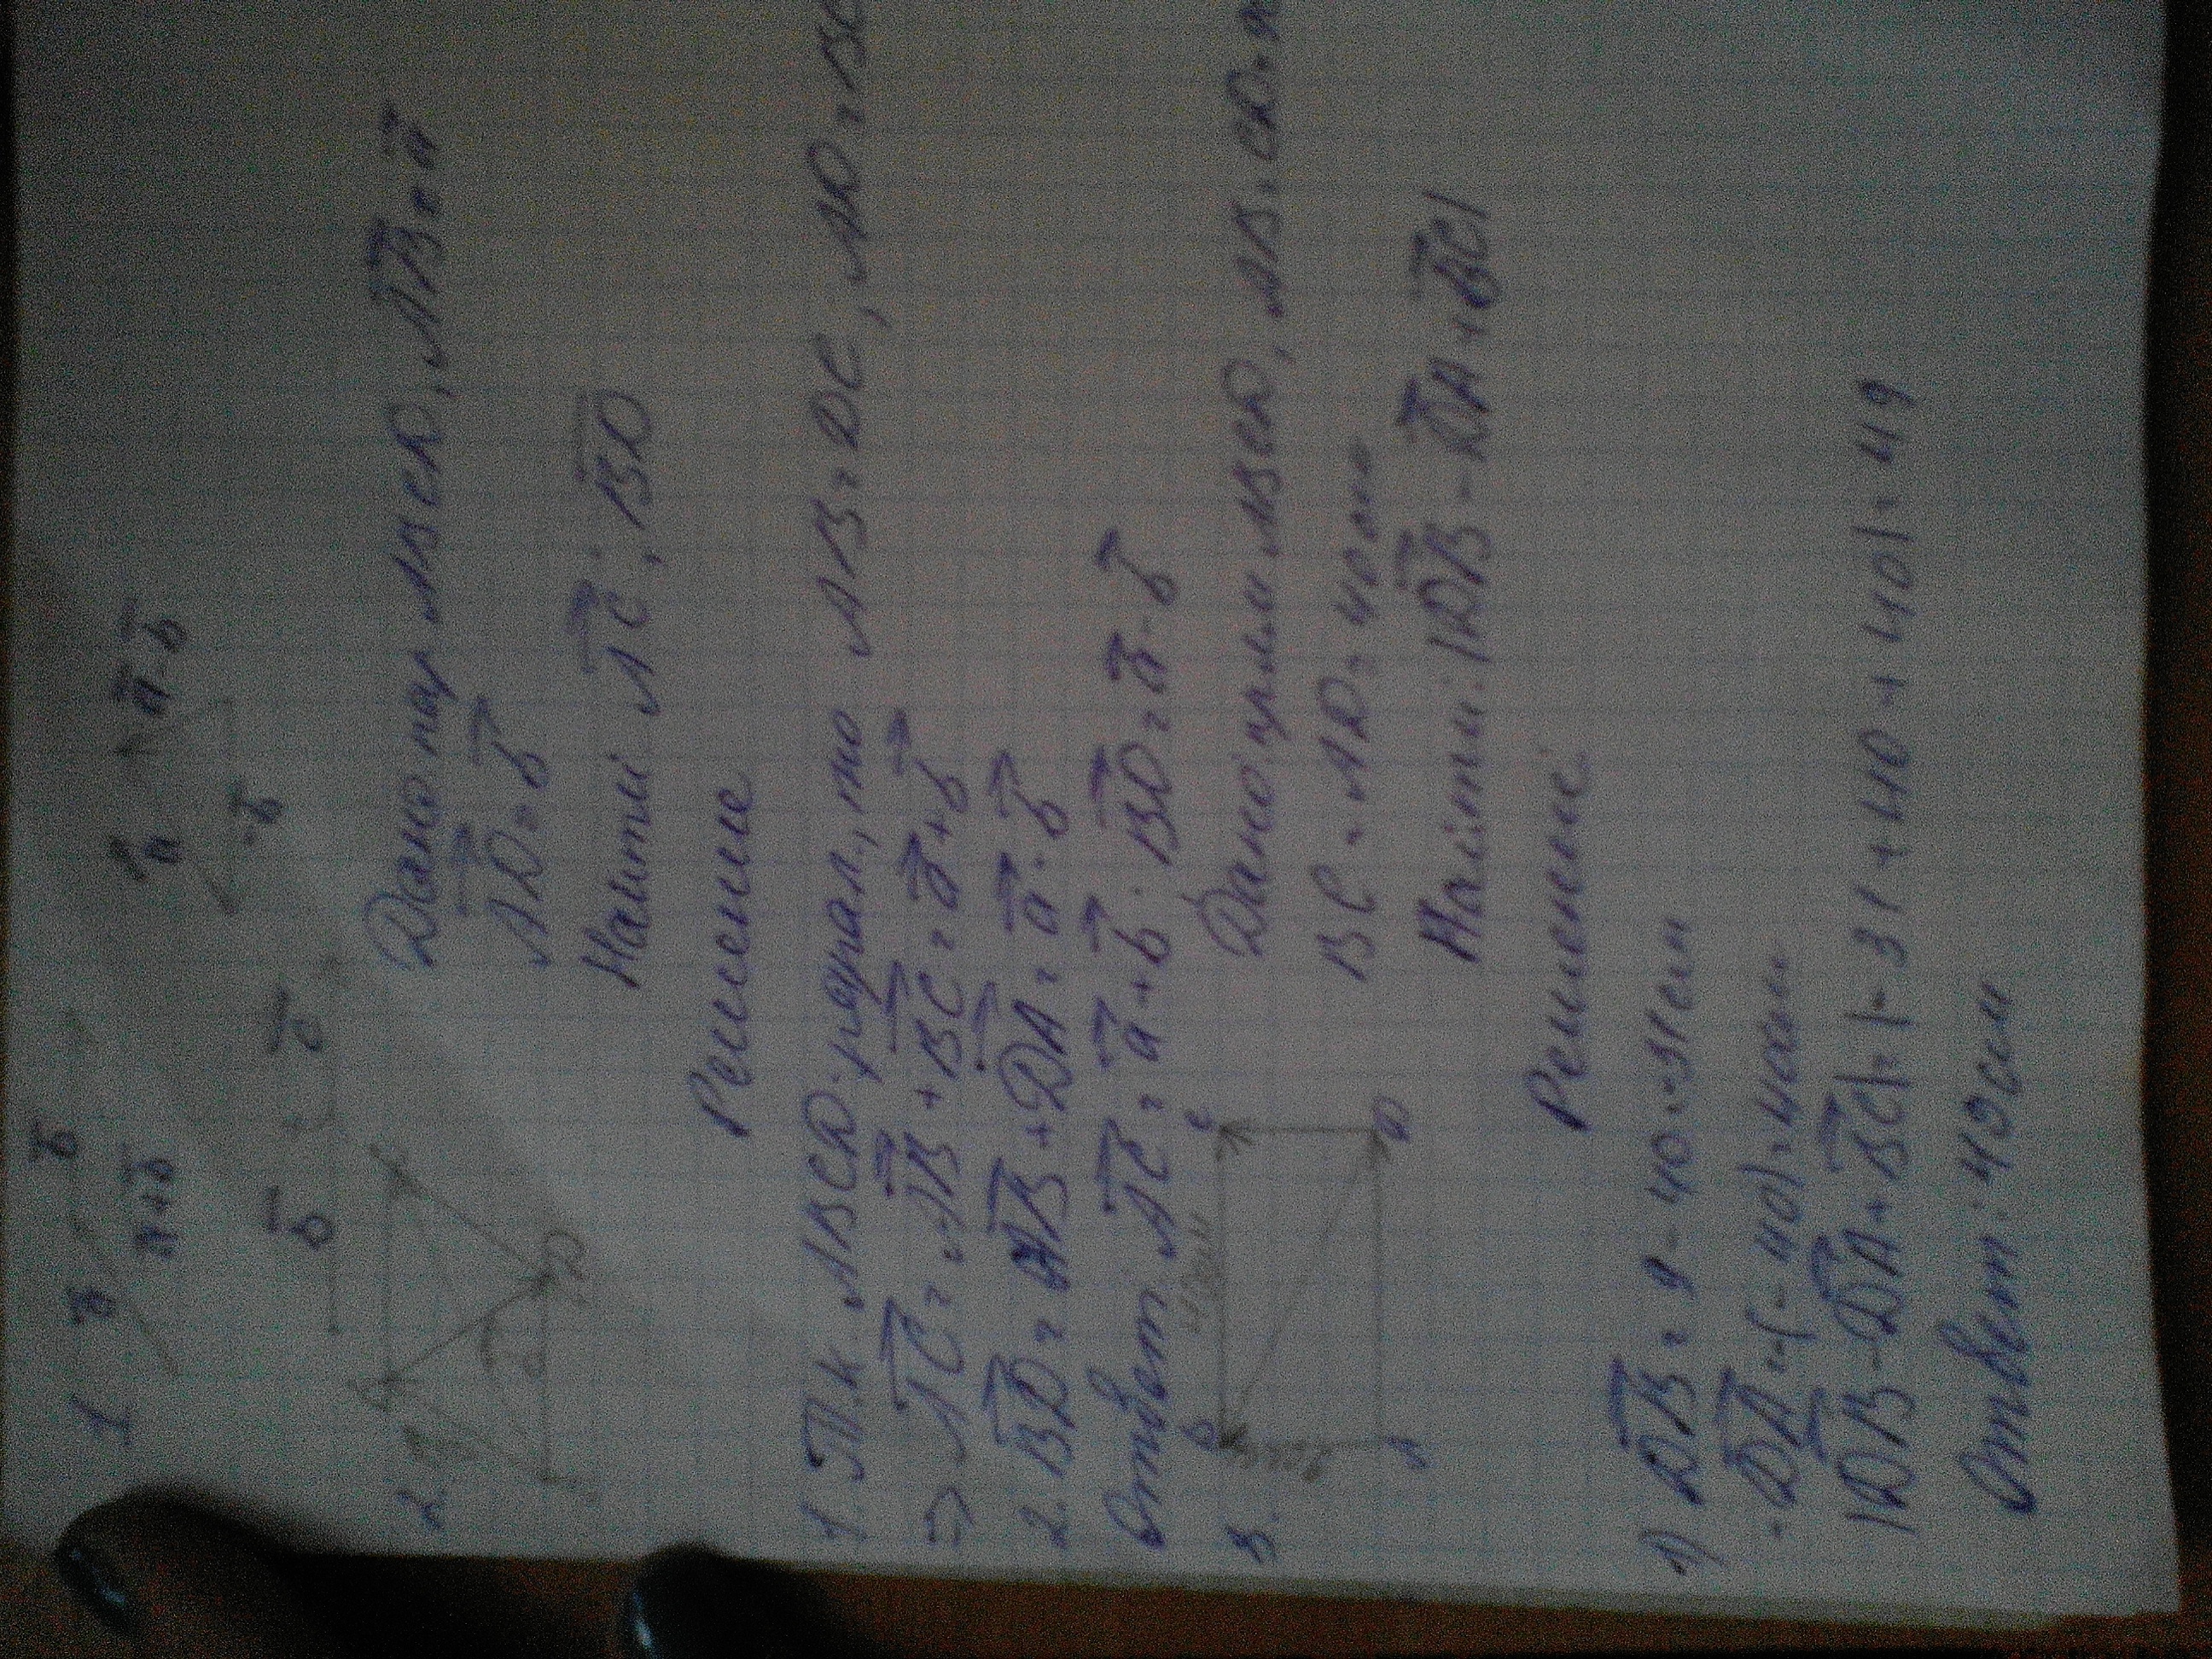 1 a b
a+b
a a-b
-b
b c
2. Дано пар ABCD, AB = a
AD = b
Найти AC, BD
Решение
1. Т.к ABCD-парал., то AB = DC, AD = BC
=> AC = AB + BC = a + b
2. BD = AB + DA = a - b
Ответ AC = a + b. BD = a - b
3. Дано: прям ABCD, AB = CD = 9
BC = AD = 40см
Найти: |DB - DA + BC|
Решение
1) DB = 9 - 40 = -31см
-DA = -(-40) = 40см
|DB - DA + BC| = |-31 + 40 + 40| = 49
Ответ: 49 см